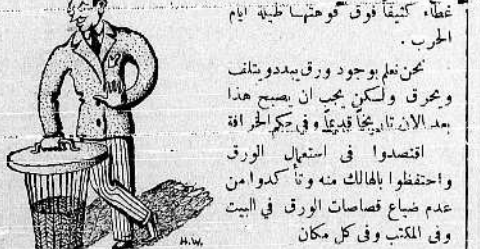 غطاء كثيفاً فوق فوهتها طيلة ايام
الحرب .
نحن نعلم بوجود ورق يبدد ويتلف
ويحرق ولكن يجب ان يصبح هذا
بعد الآن تاريخاً قديماً وفي حكم الخرافة
اقتصدوا في استعمال الورق
واحتفظوا بالهالك منه وتأكدوا من
عدم ضياع قصاصات الورق في البيت
وفي المكتب وفي كل مكان
H.W.